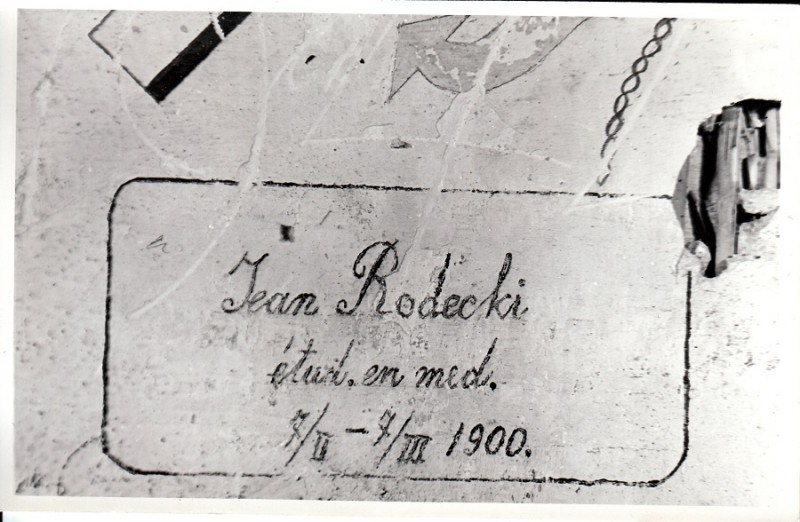 Jean Rodecki
étud. en med.
7/II – 7/III 1900.